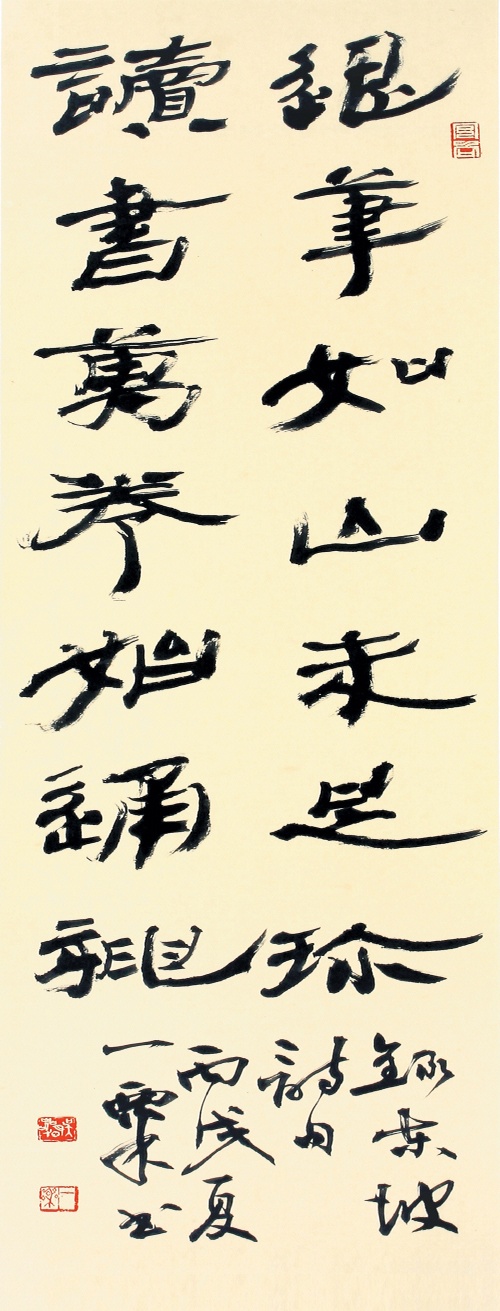 退筆如山未足珍
讀書萬卷始通神
錄東坡
詩句
丙戌夏
一粟书